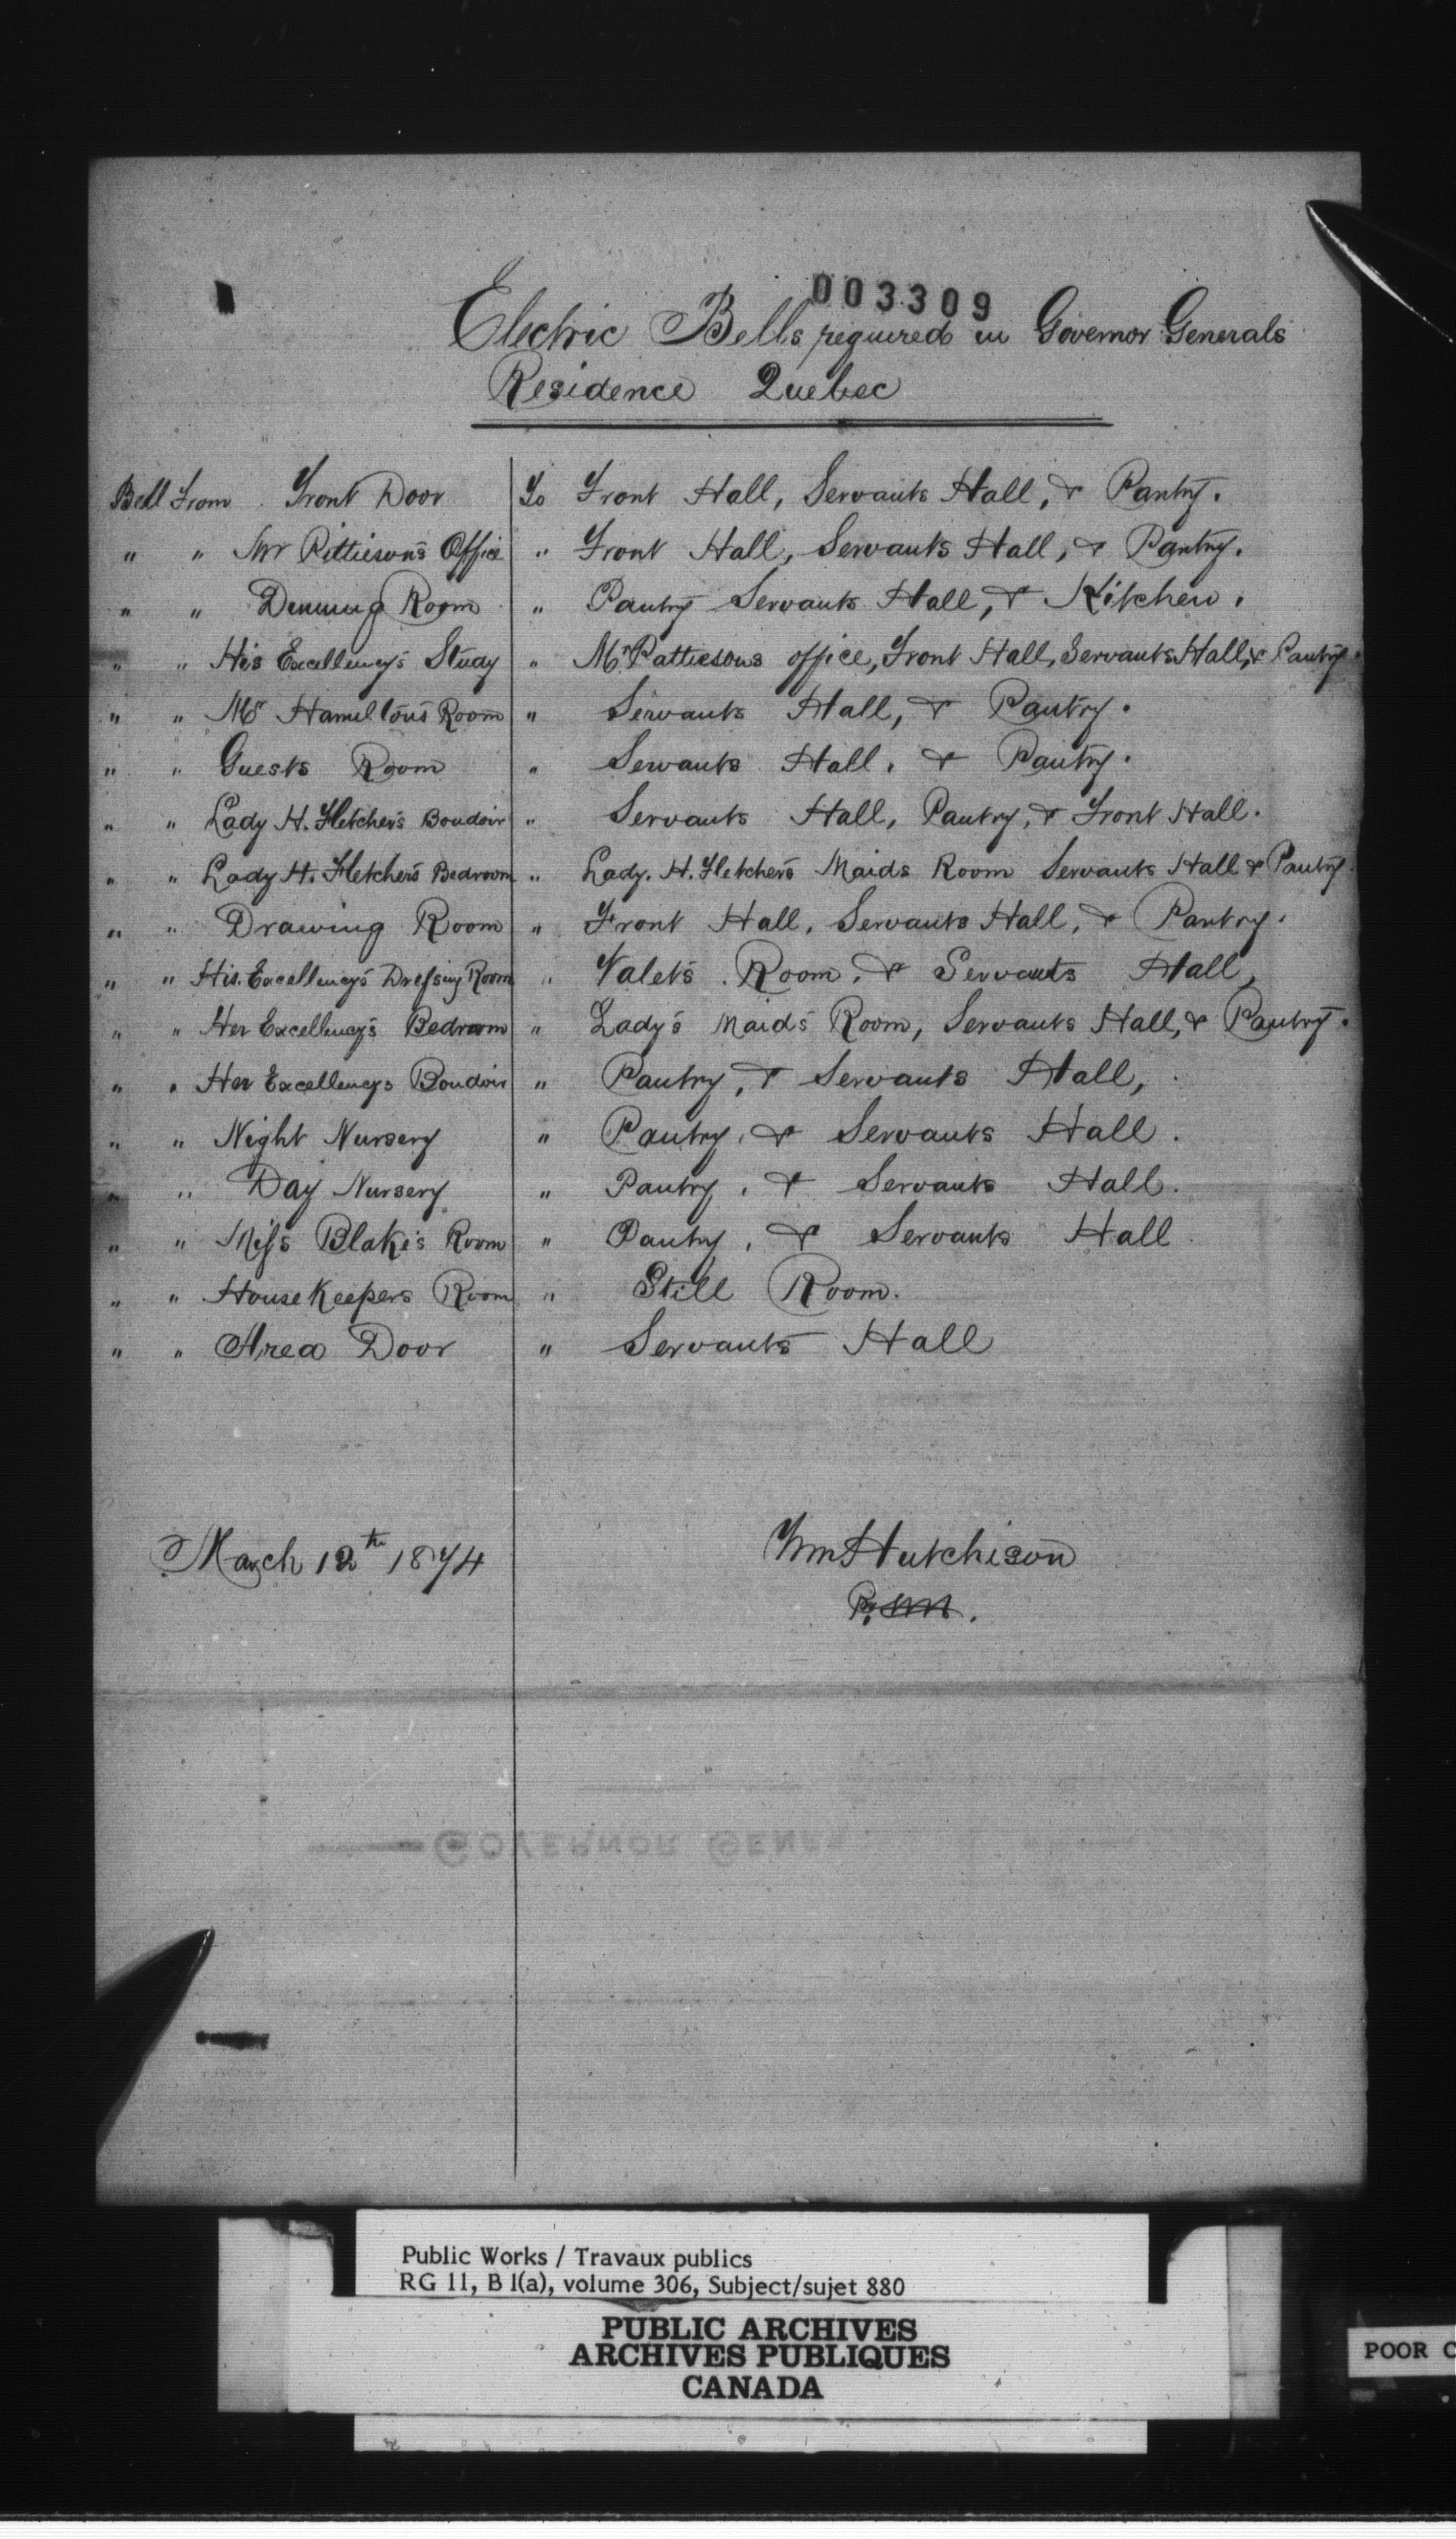 003309
Electric Bells required in Governor Generals
Residence Quebec
Bell From Front Door To Front Hall, Servants Hall, & Pantry.
" " Mr Pittieson's Office " Front Hall, Servants Hall, & Pantry.
" " Dinning Room " Pantry Servants Hall, & Kitchen.
" " His Excellency's Study " Mr Pattiesons office, Front Hall, Servants Hall, & Pantry.
" " Mr Hamilton's Room " Servants Hall, & Pantry.
" " Guests Room " Servants Hall. & Pantry.
" " Lady H. Fletcher's Boudoir " Servants Hall, Pantry, & Front Hall.
" " Lady H. Fletcher's Bedroom " Lady. H. Fletcher's Maids Room Servants Hall & Pantry.
" " Drawing Room " Front Hall, Servants Hall, & Pantry.
" " His. Excellency's Dressing Room " Valet's Room, & Servants Hall,
" " Her Excellency's Bedroom " Lady's Maid's Room, Servants Hall, & Pantry.
" " Her Excellencys Boudoir " Pantry, & Servants Hall,
" " Night Nursery " Pantry, & Servants Hall.
" " Day Nursery " Pantry, & Servants Hall.
" " Miss Blake's Room " Pantry, & Servants Hall.
" " House Keepers Room " Still Room.
" " Area Door " Servants Hall
March 12th 1874 Wm Hutchison
GOVERNOR GENER
Public Works / Travaux publics
RG 11, B 1(a), volume 306, Subject/sujet 880
PUBLIC ARCHIVES
ARCHIVES PUBLIQUES
CANADA
POOR C